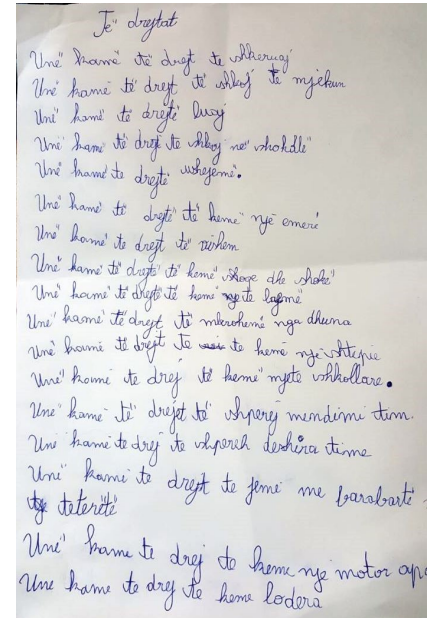 Të drejtat
Unë kamë të drejt te shkeruaj
Unë kamë të drejt të shkoj te mjekun
Unë kamë të drejtë luaj
Unë kamë të drejt te shkoj në shokdlë
Unë kamë te drejtë ushejemë.
Unë kamë të drejtë të kemë një emërë
Unë kamë te drejt të vishem
Unë kamë të drejtë të kemë shoqe dhe shokë
Unë kamë të drejtë të kemë te lagmë
Unë kamë të drejt të mbrohemë nga dhuna
Unë kamë të drejt te te kemë një shtepie
Unë kamë të drej të kemë mjete shkollare.
Unë kamë të drejet të shperej mendimi tim.
Unë kamë te drej te shpereh deshira time
Unë kamë të drejt te jemë me barabartë
teterëtë
Unë kame te drej te keme një motor apo
Une kame te drej te keme lodera